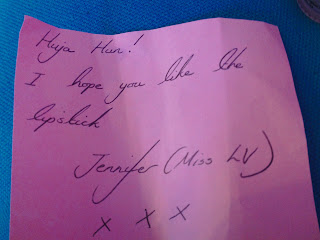 Hiya Hun!
I hope you like the
lipstick
Jennifer (Miss LV)
x x x